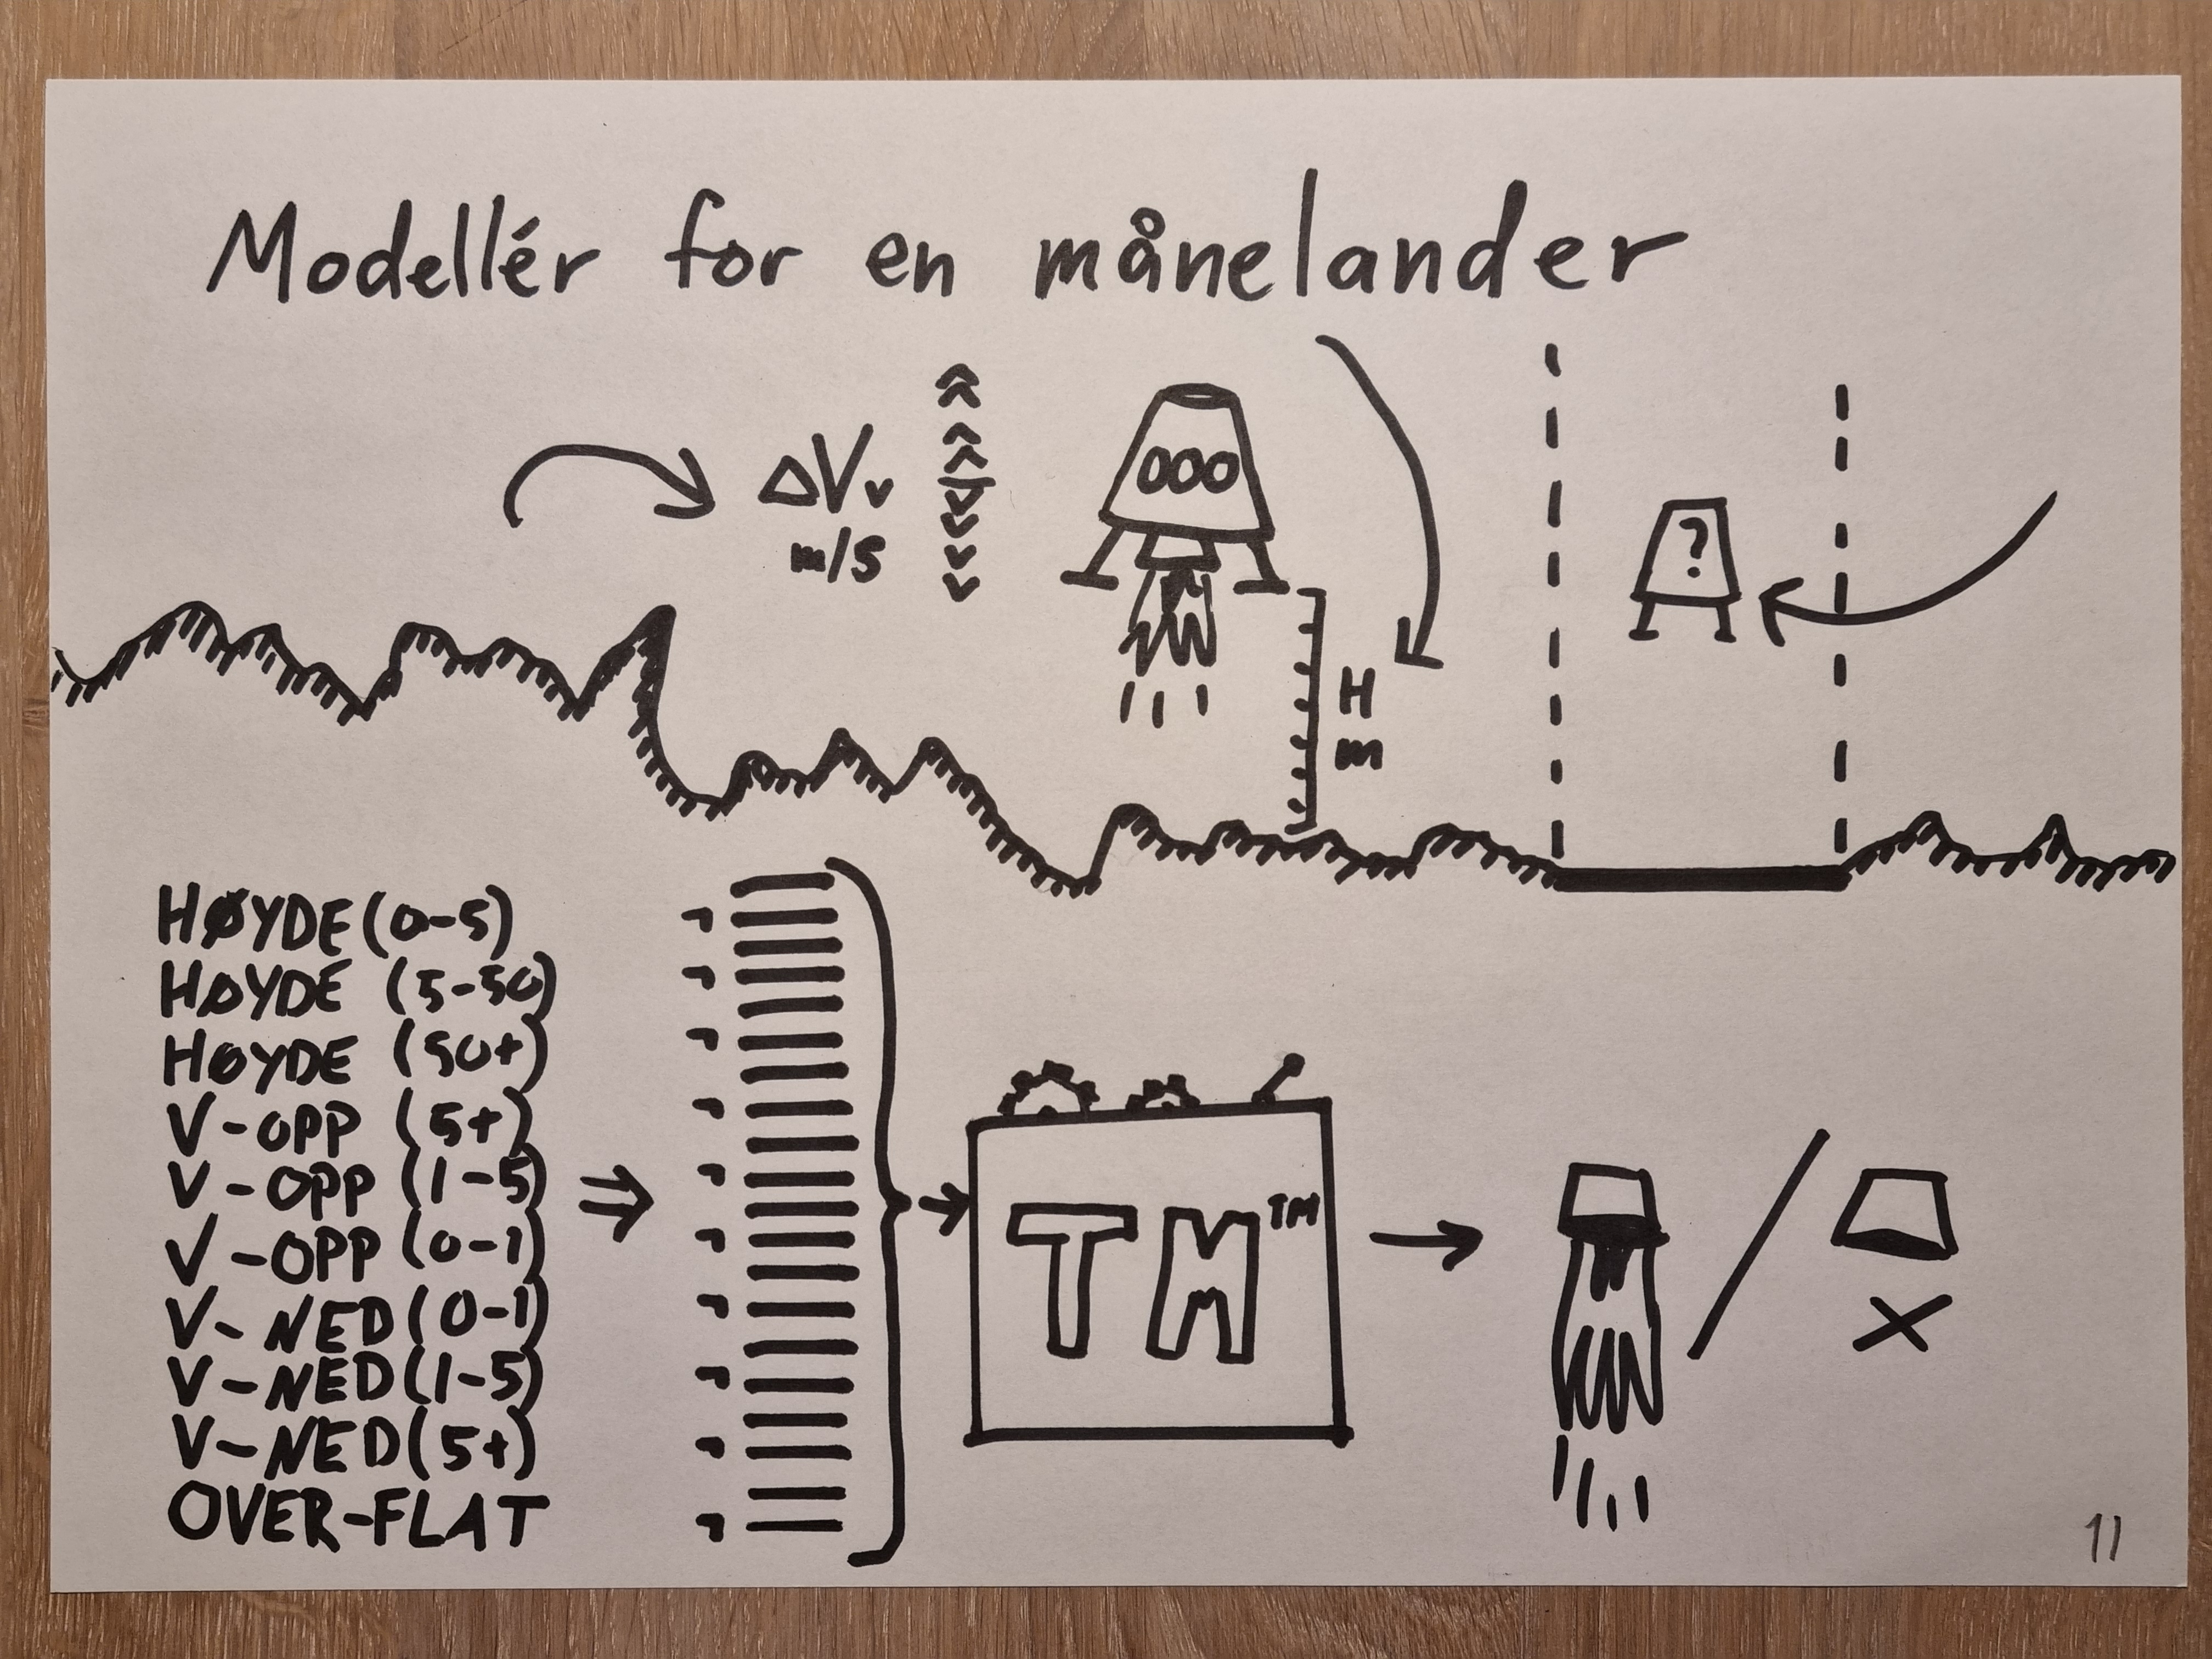 Modellér for en månelander
ΔVv
m/s
000
?
H
m
HØYDE (0-5)
HØYDE (5-50)
HØYDE (50+)
V-OPP (5+)
V-OPP (1-5)
V-OPP (0-1)
V-NED (0-1)
V-NED (1-5)
V-NED (5+)
OVER-FLAT
¬
¬
¬
¬
¬
¬
¬
¬
¬
¬
TM™
11